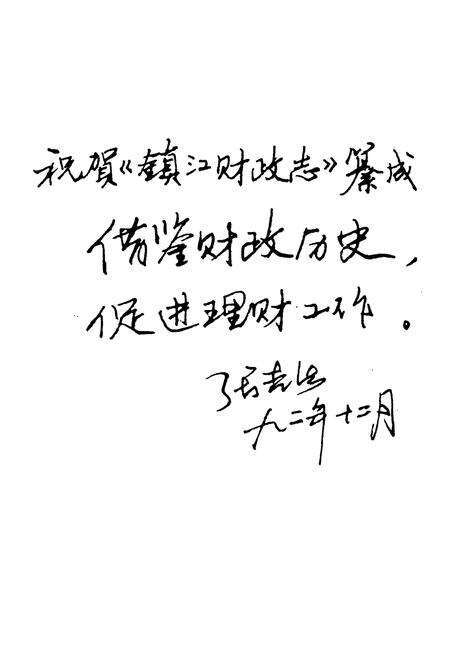 祝贺《镇江财政志》纂成
借鉴财政历史，
促进理财工作。
张吉生
九二年十二月